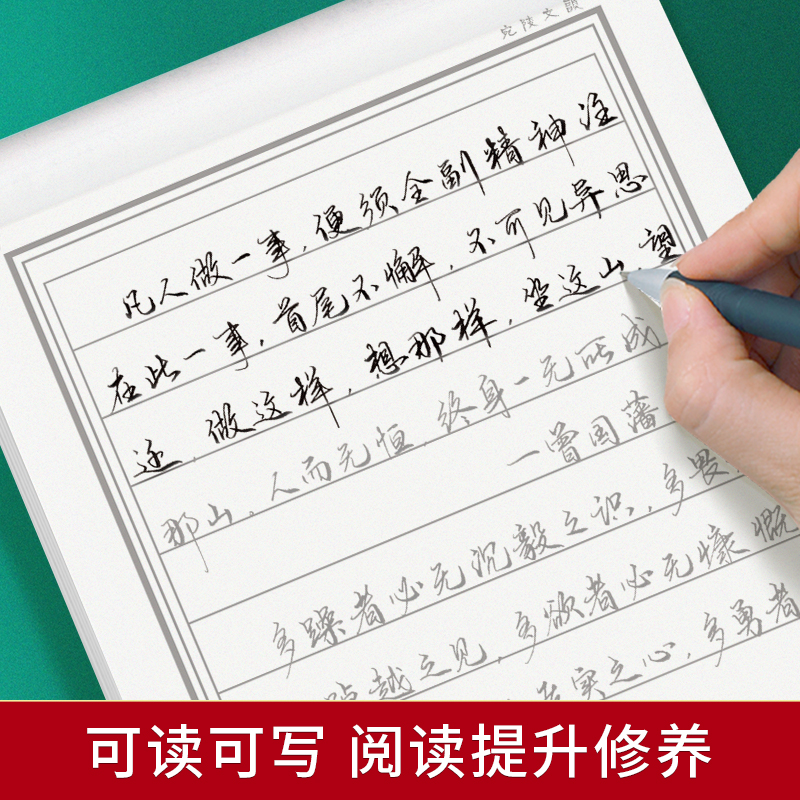 凡人做一事，便须全副精神注
在此一事，首尾不懈，不可见异思
迁，做这样，想那样，坐这山望
那山。人而无恒，终身一无所成
—曾国藩
多躁者必无沉毅之识，多畏
越之见，多欲者必无慷慨
实之心，多勇者
可读可写 阅读提升修养